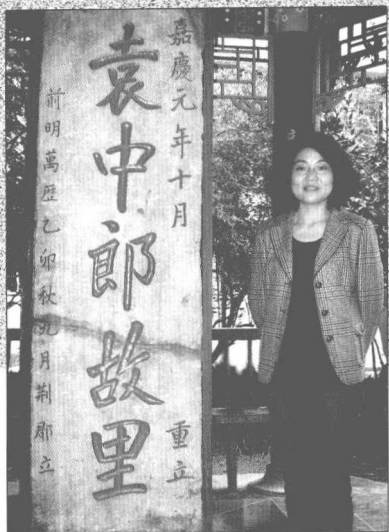 嘉慶元年十月 重立
袁中郎故里
前明萬歷乙卯秋九月荆郡立